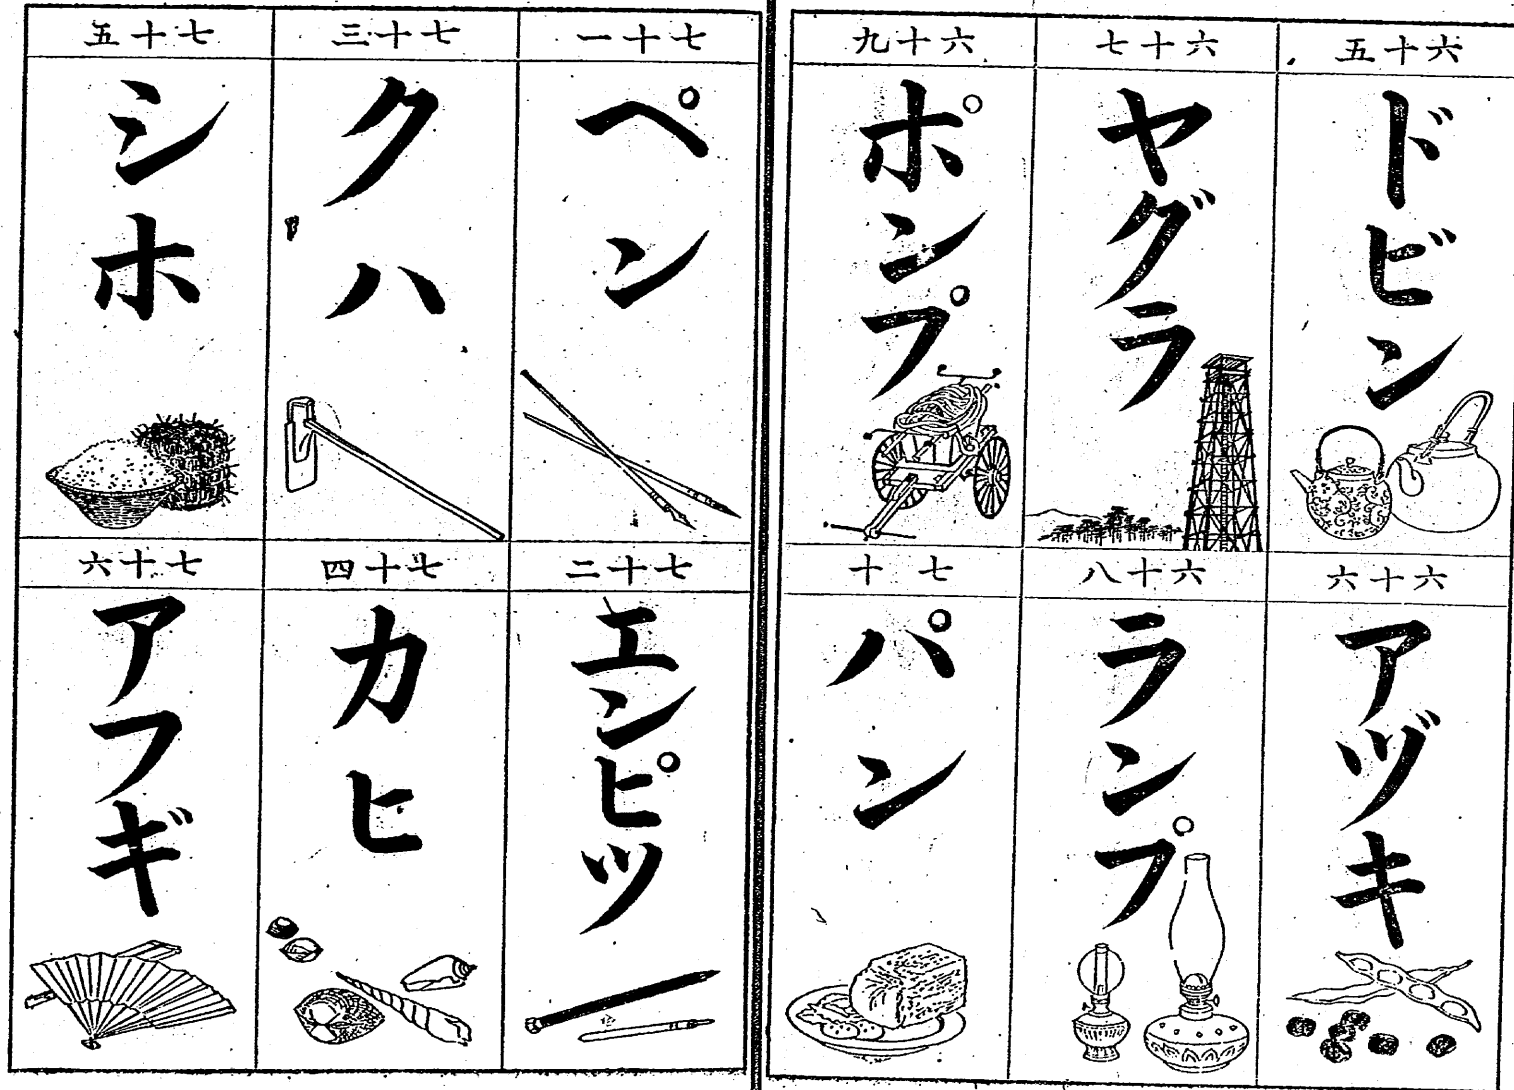 六十五
ドビン
六十六
アヅキ
六十七
ヤグラ
六十八
ランプ
六十九
ポンプ
七十
パン
七十一
ペン
七十二
エンピツ
七十三
クハ
七十四
カヒ
七十五
シホ
七十六
アフギ